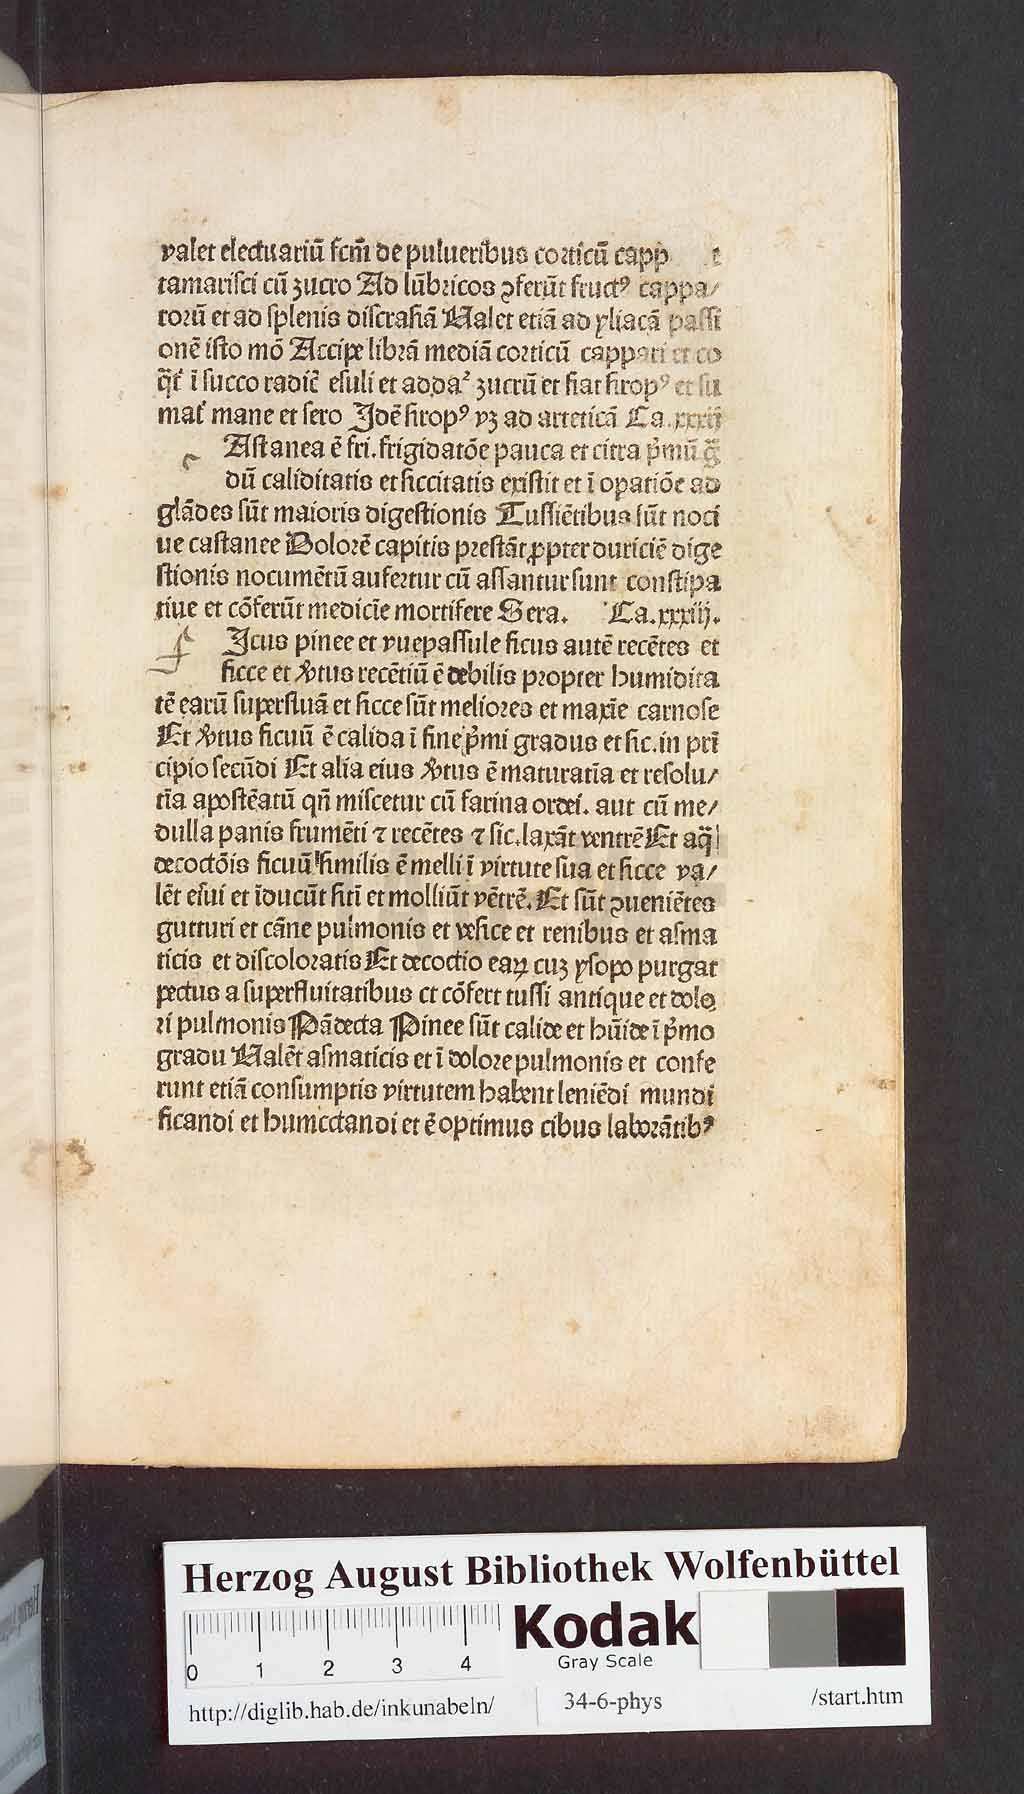 valet electuariū fcm̄ de pulueribus corticū capp t
tamarisci cū zucro Ad lūbricos ꝯferūt fructꝰ cappa/
rorū et ad splenis discrasiā Ualet etiā ad yliacā passi
onē isto mō Accipe librā mediā corticū cappari et co
q̄t̄ ī succo radic̄ esuli et addaꝛ zucrū et fiat siropꝰ et su
mat̄ mane et sero Idē siropꝰ vꝫ ad arteticā Ca.xxxij
c Astanea ē fri. frigidatōe pauca et citra p̄mū g̃
dū caliditatis et siccitatis existit et ī opatiōe ad
glādes sūt maioris digestionis Tussiētibus sūt noci
ue castanee Dolorē capitis prestāt ꝓpter duriciē dige
stionis nocumētū aufertur cū assantur sunt constipa
tiue et cōferūt medicīe mortifere Sera. Ca.xxxiij.
f Icus pinee et vuepassule ficus autē recētes et
sicce et v̓tus recētiū ē debilis propter humidita
tē earū superfluā et sicce sūt meliores et maxīe carnose
Et v̓tus ficuū ē calida ī fine p̄mi gradus et sic. in prī
cipio secūdi Et alia eius v̓tus ē maturatīa et resolu/
tīa apostēatū qn̄ miscetur cū farina ordei. aut cū me/
dulla panis frumēti ⁊ recētes ⁊ sic. laxāt ventrē Et aq̄
decoctōis ficuū similis ē melli ī virtute sua et sicce va/
lēt esui et īducūt sitī et molliūt vētrē. Et sūt ꝯueniētes
gutturi et cāne pulmonis et vesice et renibus et asma
ticis et discoloratis Et decoctio eaꝝ cuꝫ ysopo purgat
pectus a superfluitatibus et cōfert tussi antique et dolo
ri pulmonis Pādecta Pinee sūt calide et hūide ī p̄mo
gradu Ualēt asmaticis et ī dolore pulmonis et confe
runt etiā consumptis virtutem habent leniēdi mundi
ficandi et humectandi et ē optimus cibus laborātibꝰ
Herzog August Bibliothek Wolfenbüttel
0 1 2 3 4
Kodak
Gray Scale
http://diglib.hab.de/inkunabeln/ 34-6-phys /start.htm